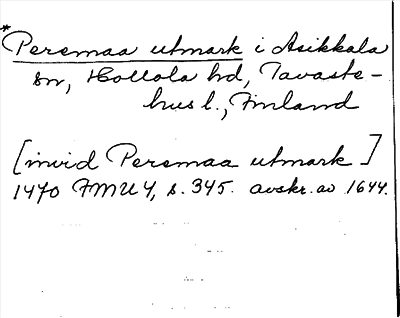 *Peremaa utmark i Asikkala
sn, Hollola hd, Tavaste-
hus l., Finland
[invid Peremaa utmark]
1470 FMU 4, s. 345. avskr. av 1644.